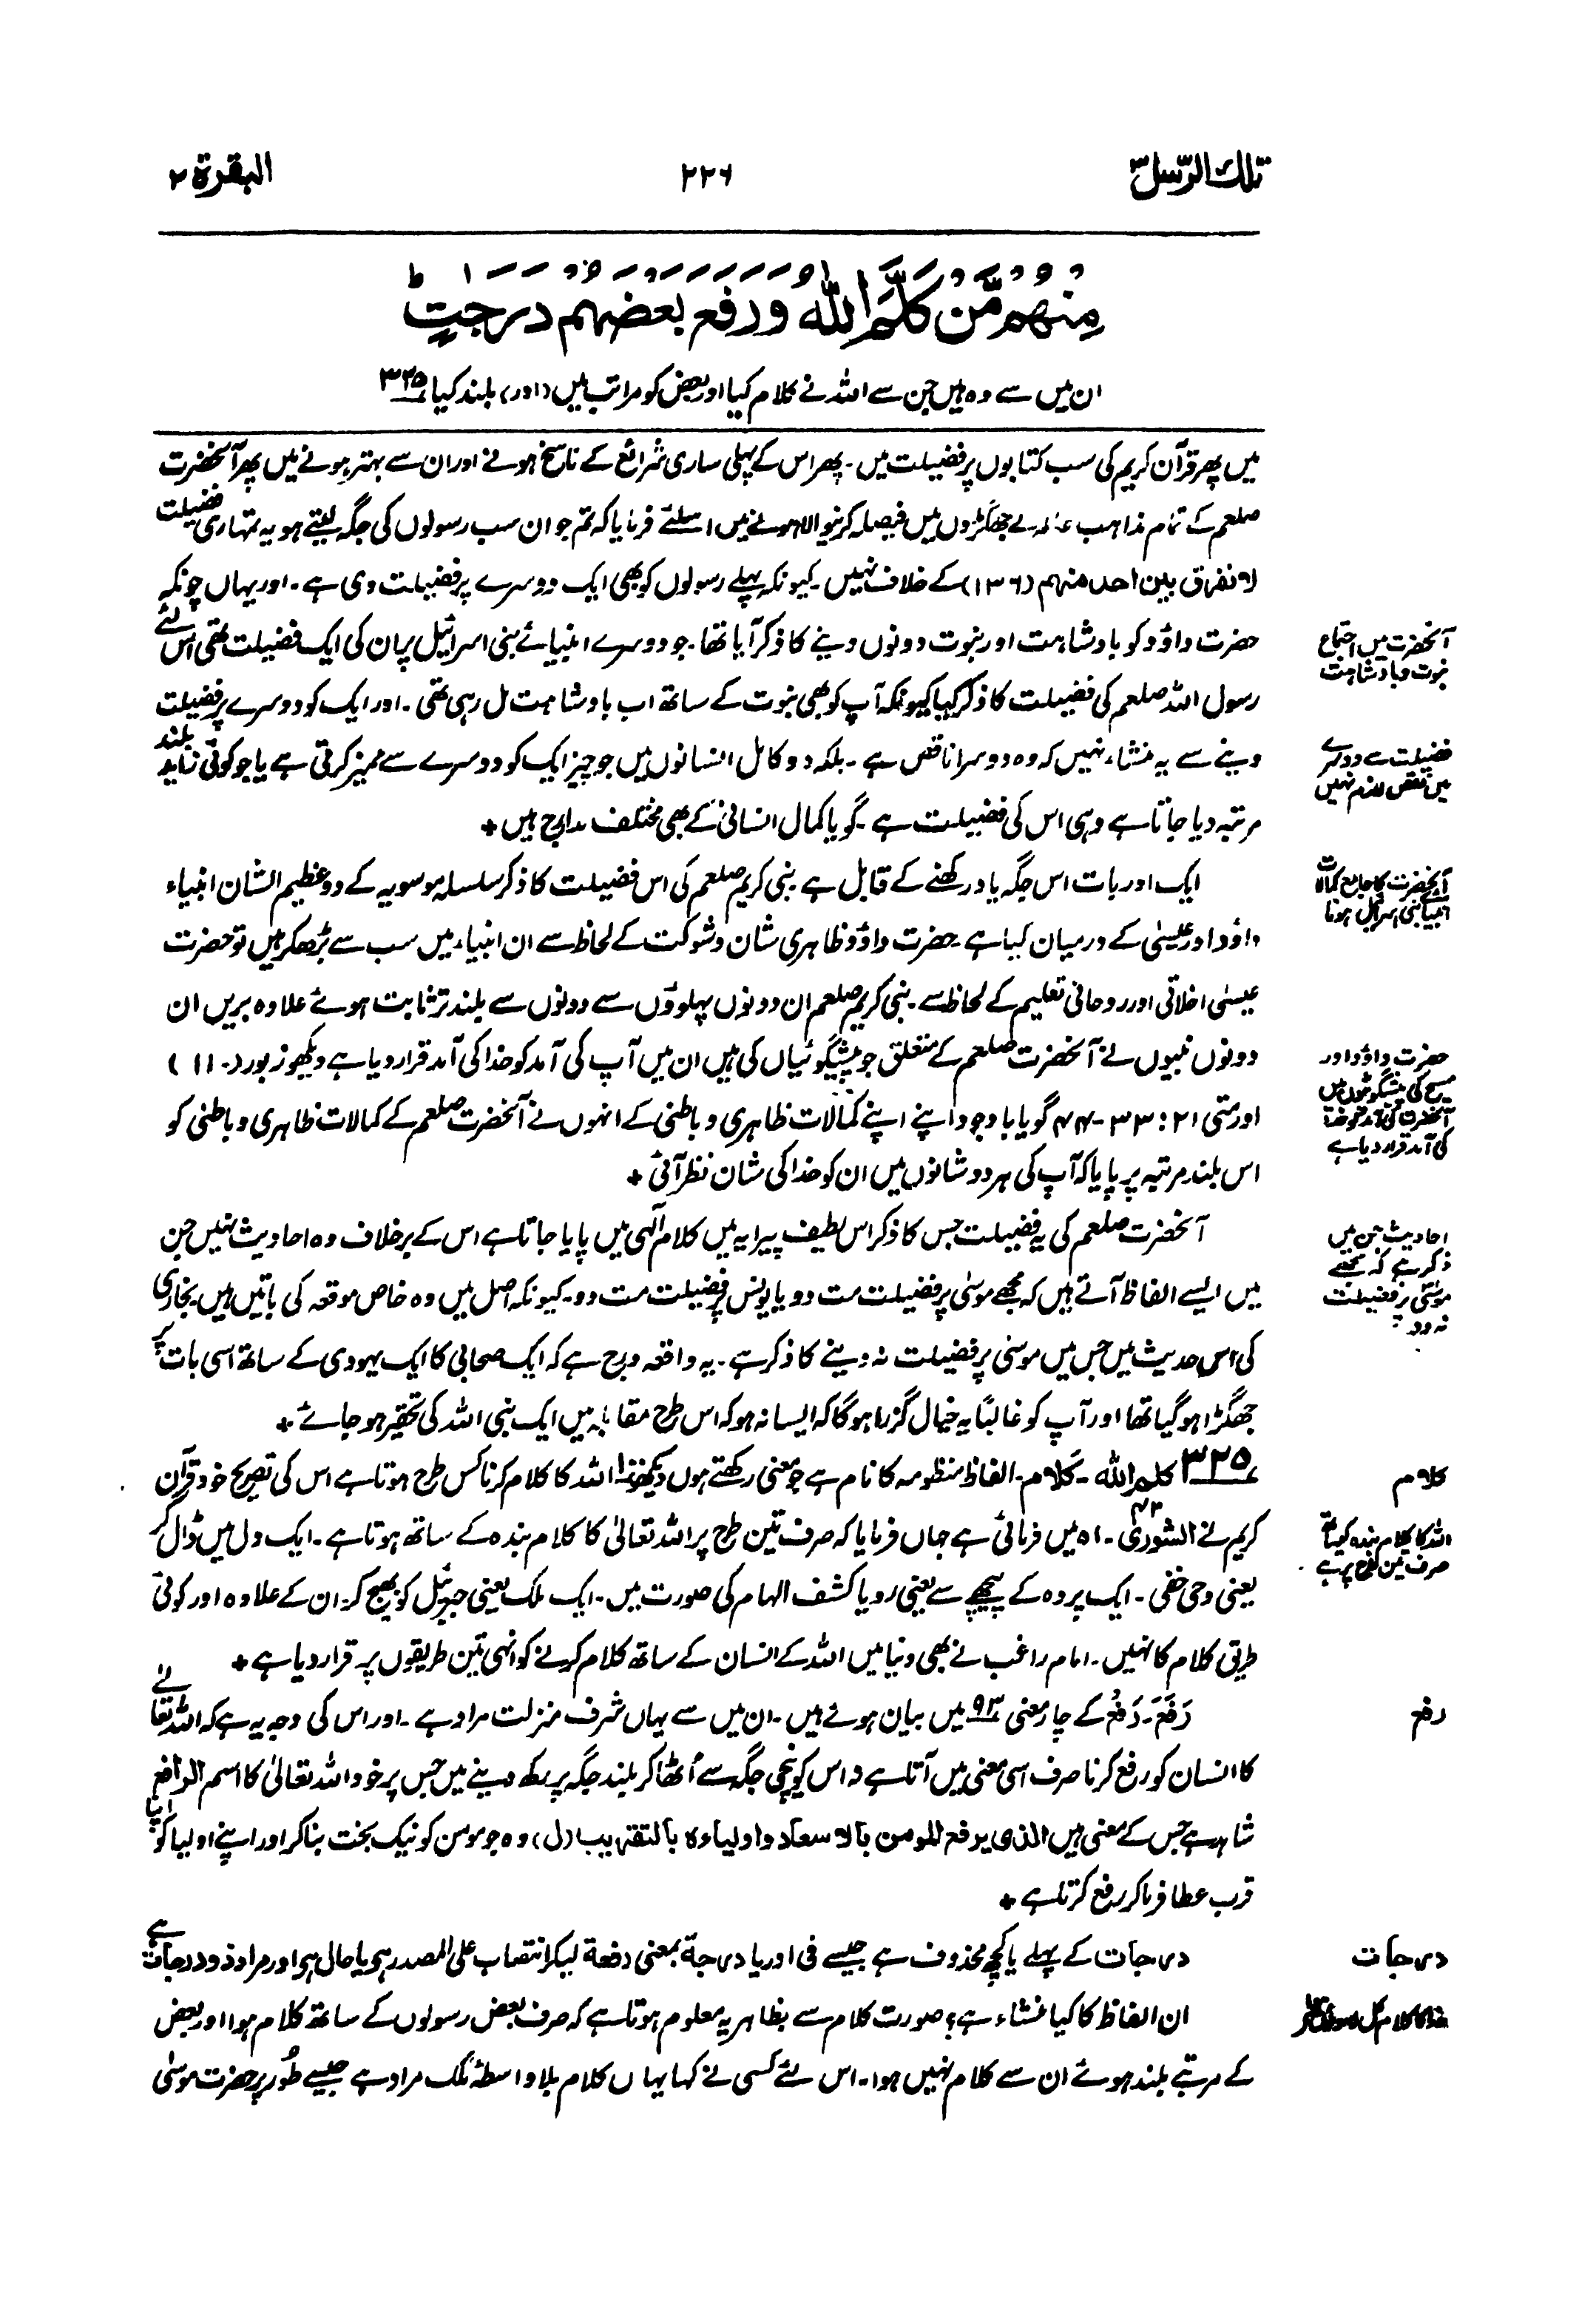 تلك الرّسل ٣
٢٢٦
البقرة ٢
مِنْهُمْ مَّنْ كَلَّمَ اللّٰهُ وَرَفَعَ بَعْضَهُمْ دَرَجٰتٍ ط
ان میں سے وہ ہیں جن سے اللہ نے کلام کیا اور بعض کو مراتب میں (اور) بلند کیا ۳۲۵
میں پھر قرآن کریم کی سب کتابوں پر فضیلت میں ۔ پھر اس کے پہلی ساری شرائع کے ناسخ ہونے اور ان سے بہتر ہونے میں پھر آنحضرت
صلعم کے تمام مذاہب کے جھگڑوں میں فیصلہ کرنیوالا ہونے میں اسلئے فرمایا کہ تم جو ان سب رسولوں کی جگہ لیتے ہو یہ تمہاری فضیلت
لا نفرق بین احد منہم (۱۳۶) کے خلاف نہیں ۔ کیونکہ پہلے رسولوں کو بھی ایک دوسرے پر فضیلت دی ہے ۔ اور یہاں چونکہ
حضرت داؤد کو بادشاہت اور نبوت دونوں دینے کا ذکر آیا تھا ۔ جو دوسرے انبیائے بنی اسرائیل پر ان کی ایک فضیلت تھی اس لئے
آنحضرت میں اجتماع
نبوت و بادشاہت
رسول اللہ صلعم کی فضیلت کا ذکر کیا کیونکہ آپ کو بھی نبوت کے ساتھ اب بادشاہت مل رہی تھی ۔ اور ایک کو دوسرے پر فضیلت
دینے سے یہ منشاء نہیں کہ وہ دوسرا ناقص ہے ۔ بلکہ دو کامل انسانوں میں جو چیز ایک کو دوسرے سے ممیز کرتی ہے یا جو کوئی زاید بلند
فضیلت سے دوسرے
میں نقص لازم نہیں
مرتبہ دیا جاتا ہے وہی اس کی فضیلت ہے ۔ گویا کمال انسانی کے بھی مختلف مدارج ہیں ٭
ایک اور بات اس جگہ یاد رکھنے کے قابل ہے نبی کریم صلعم کی اس فضیلت کا ذکر سلسلہ موسویہ کے دو عظیم الشان انبیاء
آنحضرت کا جامع کمالات
انبیا بنی اسرائیل ہونا
داؤد اور عیسیٰ کے درمیان کیا ہے ۔ حضرت داؤد ظاہری شان و شوکت کے لحاظ سے ان انبیاء میں سب سے بڑھکر ہیں تو حضرت
عیسیٰ اخلاقی اور روحانی تعلیم کے لحاظ سے ۔ نبی کریم صلعم ان دونوں پہلوؤں سے دونوں سے بلند تر ثابت ہوئے علاوہ بریں ان
دونوں نبیوں نے آنحضرت صلعم کے متعلق جو پیشگوئیاں کی ہیں ان میں آپ کی آمد کو خدا کی آمد قرار دیا ہے دیکھو زبور (۱۱۰)
حضرت داؤد اور
مسیح کی پیشگوئیوں میں
آنحضرت کی آمد کو خدا
کی آمد قرار دیا ہے
اور متی ۲۱: ۳۳-۴۴ گویا باوجود اپنے اپنے کمالات ظاہری و باطنی کے انہوں نے آنحضرت صلعم کے کمالات ظاہری و باطنی کو
اس بلند مرتبہ پر پایا کہ آپ کی ہر دو شانوں میں ان کو خدا کی شان نظر آئی ٭
آنحضرت صلعم کی یہ فضیلت جس کا ذکر اس لطیف پیرایہ میں کلام الٰہی میں پایا جاتا ہے اس کے برخلاف وہ احادیث نہیں جن
احادیث جن میں
ذکر ہے کہ مجھے
موسیٰ پر فضیلت
نہ دو
میں ایسے الفاظ آتے ہیں کہ مجھے موسیٰ پر فضیلت مت دو یا یونس پر فضیلت مت دو ۔ کیونکہ اصل میں وہ خاص موقعہ کی باتیں ہیں بخاری
کی اس حدیث میں جس میں موسیٰ پر فضیلت نہ دینے کا ذکر ہے ۔ یہ واقعہ درج ہے کہ ایک صحابی کا ایک یہودی کے ساتھ اسی بات پر
جھگڑا ہو گیا تھا اور آپ کو غالبًا یہ خیال گزرا ہوگا کہ ایسا نہ ہو کہ اس طرح مقابلہ میں ایک نبی اللہ کی تحقیر ہو جائے ٭
۳۲۵ کلم اللہ ۔ کلام ۔ الفاظ منظومہ کا نام ہے جو معنی رکھتے ہوں اللہ کا کلام کرنا کس طرح ہوتا ہے اس کی تصریح خود قرآن
کلام
کریم نے الشوریٰ ۴۲ ۔ ۵۱ میں فرمائی ہے جہاں فرمایا کہ صرف تین طرح پر اللہ تعالیٰ کا کلام بندہ کے ساتھ ہوتا ہے ۔ ایک دل میں ڈال کر
اللہ کا کلام بندہ کیساتھ
صرف تین طرح پر ہے
یعنی وحی خفی ۔ ایک پردہ کے پیچھے سے یعنی رویا کشف الہام کی صورت میں ۔ ایک ملک یعنی جبرئیل کو بھیج کر ۔ ان کے علاوہ اور کوئی
طریق کلام کا نہیں ۔ امام راغب نے بھی دنیا میں اللہ کے انسان کے ساتھ کلام کرنے کو انہی تین طریقوں پر قرار دیا ہے ٭
رَفَعَ ۔ رَفْعٌ کے چار معنی ۹۳ میں بیان ہوئے ہیں ۔ ان میں سے یہاں شرف منزلت مراد ہے ۔ اور اس کی وجہ یہ ہے کہ اللہ تعالےٰ
رفع
کا انسان کو رفع کرنا صرف اسی معنی میں آتا ہے نہ اس کو نیچی جگہ سے اُٹھا کر بلند جگہ پر رکھ دینے میں جس پر خود اللہ تعالیٰ کا اسم الرافع
شاہد ہے جس کے معنی ہیں الذی یرفع المومن بالاسعاد و اولیاءہ بالتقریب (ل) وہ جو مومن کو نیک بخت بنا کر اور اپنے اولیا کو اپنا
قرب عطا فرما کر رفع کرتا ہے ٭
درجات کے پہلے یا کچھ محذوف ہے جیسے فی اور یا درجة بمعنی رفعة لیکر انتصاب علی المصدر ہے یا حال ہے اور مراد ذو درجات ہے
درجات
ان الفاظ کا کیا منشاء ہے؟ صورت کلام سے بظاہر یہ معلوم ہوتا ہے کہ صرف بعض رسولوں کے ساتھ کلام ہوا اور بعض
خدا کا کلام کل
کے مرتبے بلند ہوئے ان سے کلام نہیں ہوا ۔ اس لئے کسی نے کہا یہاں کلام بلا واسطۂ ملک مراد ہے جیسے طُور پر حضرت موسیٰ